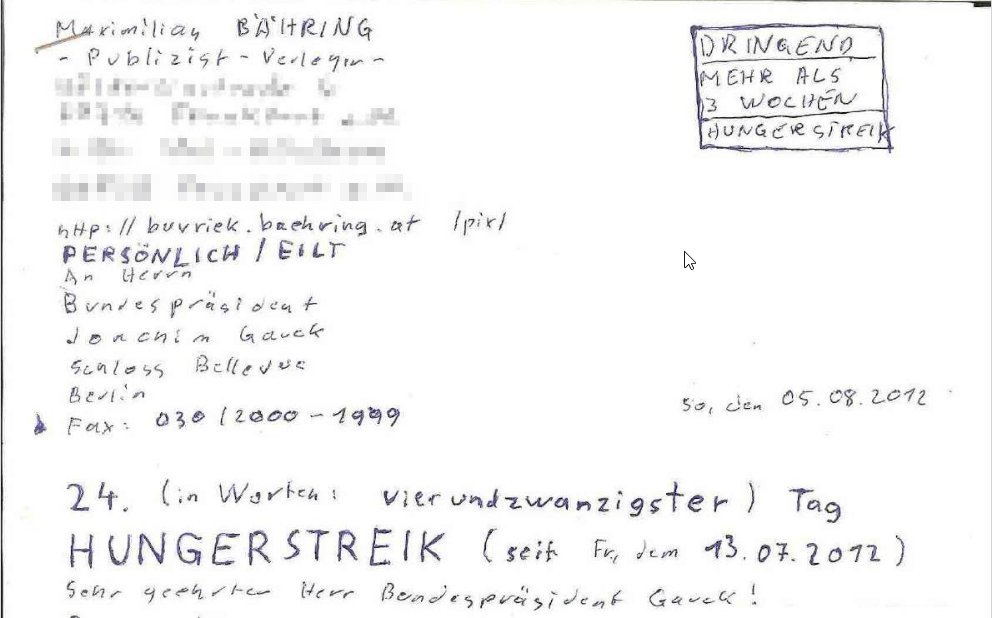 Maximilian BÄHRING
- Publizist - Verleger -
DRINGEND
MEHR ALS
3 WOCHEN
HUNGERSTREIK
http://buvriek.baehring.at /pix/
PERSÖNLICH / EILT
An Herrn
Bundespräsident
Joachim Gauck
Schloss Bellevue
Berlin
Fax: 030 / 2000 - 1999
So, den 05.08.2012
24. (in Worten: vierundzwanzigster) Tag
HUNGERSTREIK (seit Fr, dem 13.07.2012)
Sehr geehrter Herr Bundespräsident Gauck!